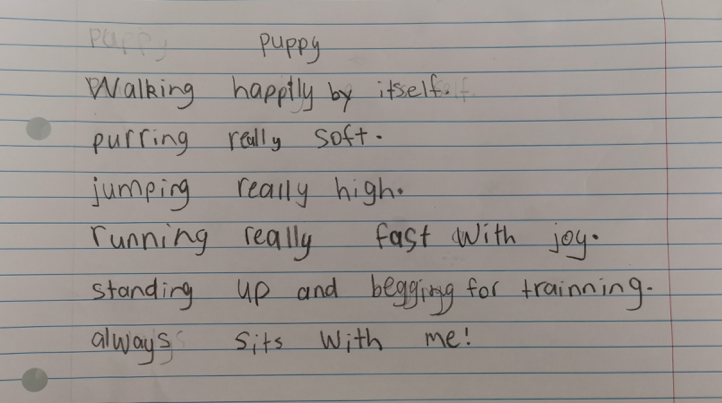 puppy
Walking happily by itself.
purring really soft.
jumping really high.
running really fast with joy.
standing up and begging for trainning.
always sits with me!